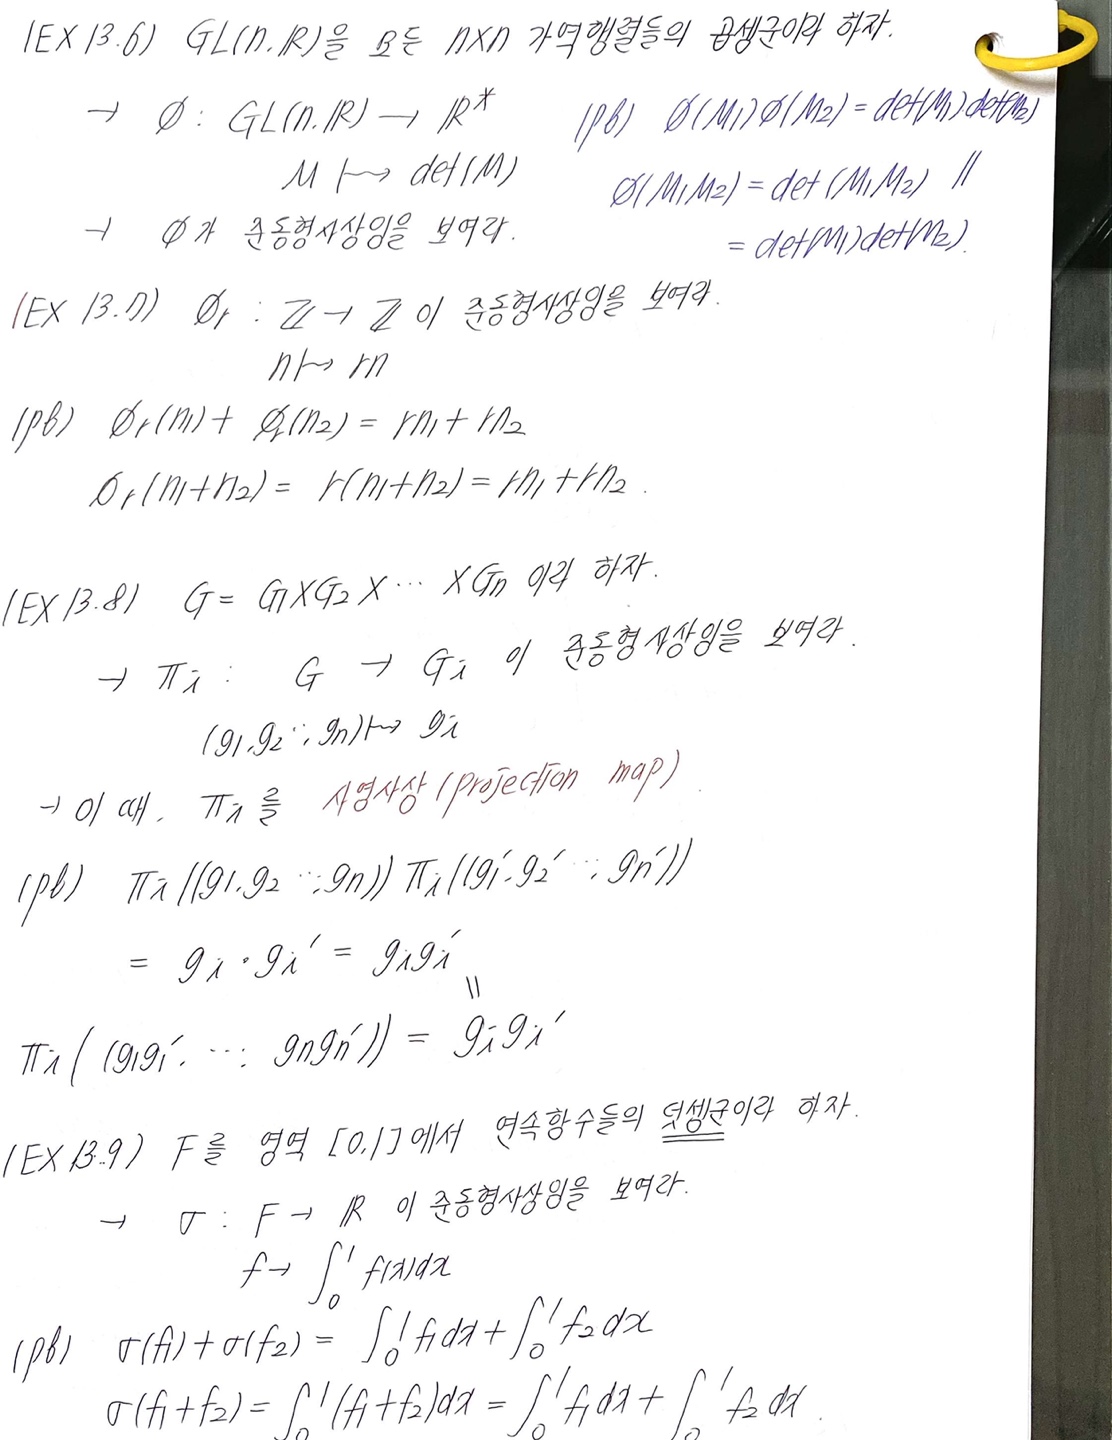 (EX 13.6) GL(n.ℝ)을 모든 n×n 가역행렬들의 곱셈군이라 하자.
→ ∅ : GL(n.ℝ) → ℝ*
M ↦ det(M)
→ ∅가 준동형사상임을 보여라.
(pf) ∅(M₁)∅(M₂) = det(M₁)det(M₂)
∅(M₁M₂) = det(M₁M₂) ||
= det(M₁)det(M₂).
(EX 13.7) ∅r : ℤ → ℤ 이 준동형사상임을 보여라.
n ↦ rn
(pf) ∅r(n₁) + ∅r(n₂) = rn₁ + rn₂
∅r(n₁+n₂) = r(n₁+n₂) = rn₁ + rn₂.
(EX 13.8) G = G₁×G₂×⋯×Gn 이라 하자.
→ πi : G → Gi 이 준동형사상임을 보여라.
(g₁.g₂⋯, gn) ↦ gi
→ 이 때. πi를 사영사상(projection map).
(pf) πi((g₁.g₂⋯, gn)) πi((g₁′.g₂′⋯, gn′))
= gi · gi′ = gigi′
||
πi((g₁g₁′.⋯, gngn′)) = gigi′
(EX 13.9) F를 영역 [0,1]에서 연속함수들의 덧셈군이라 하자.
→ σ : F → ℝ 이 준동형사상임을 보여라.
f → ∫₀¹ f(x)dx
(pf) σ(f₁)+σ(f₂) = ∫₀¹ f₁dx + ∫₀¹ f₂dx
σ(f₁+f₂) = ∫₀¹ (f₁+f₂)dx = ∫₀¹ f₁dx + ∫₀¹ f₂dx.